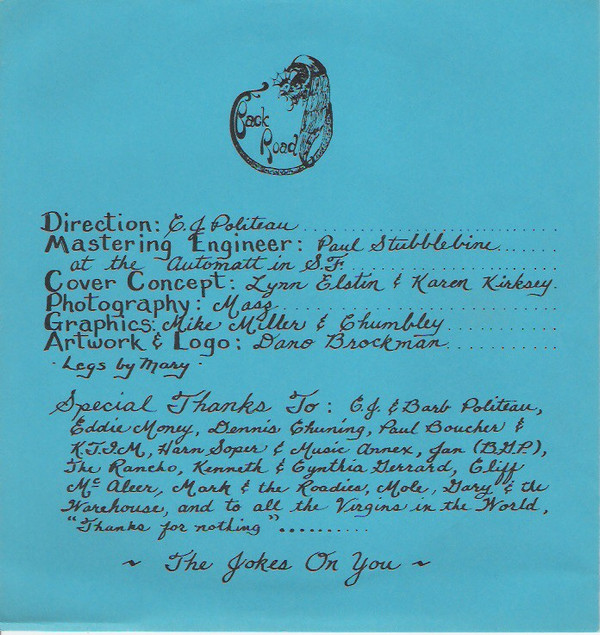 Back
Road
Direction: E.J Politeau
Mastering Engineer: Paul Stubblebine
at the Automatt in S.F.
Cover Concept: Lynn Elstin & Karen Kirksey.
Photography: Masg
Graphics: Mike Miller & Chumbley
Artwork & Logo: Dano Brockman
· Legs by Mary ·
Special Thanks To: E.J. & Barb Politeau,
Eddie Money, Dennis Chuning, Paul Boucher &
K.T.I.M., Harn Soper & Music Annex, Jan (B.G.P.),
The Rancho, Kenneth & Cynthia Gerrard, Cliff
Mc Aleer, Mark & the Roadies, Mole, Gary & the
Warehouse, and to all the Virgins in the World,
"Thanks for nothing"..........
~ The Jokes On You ~